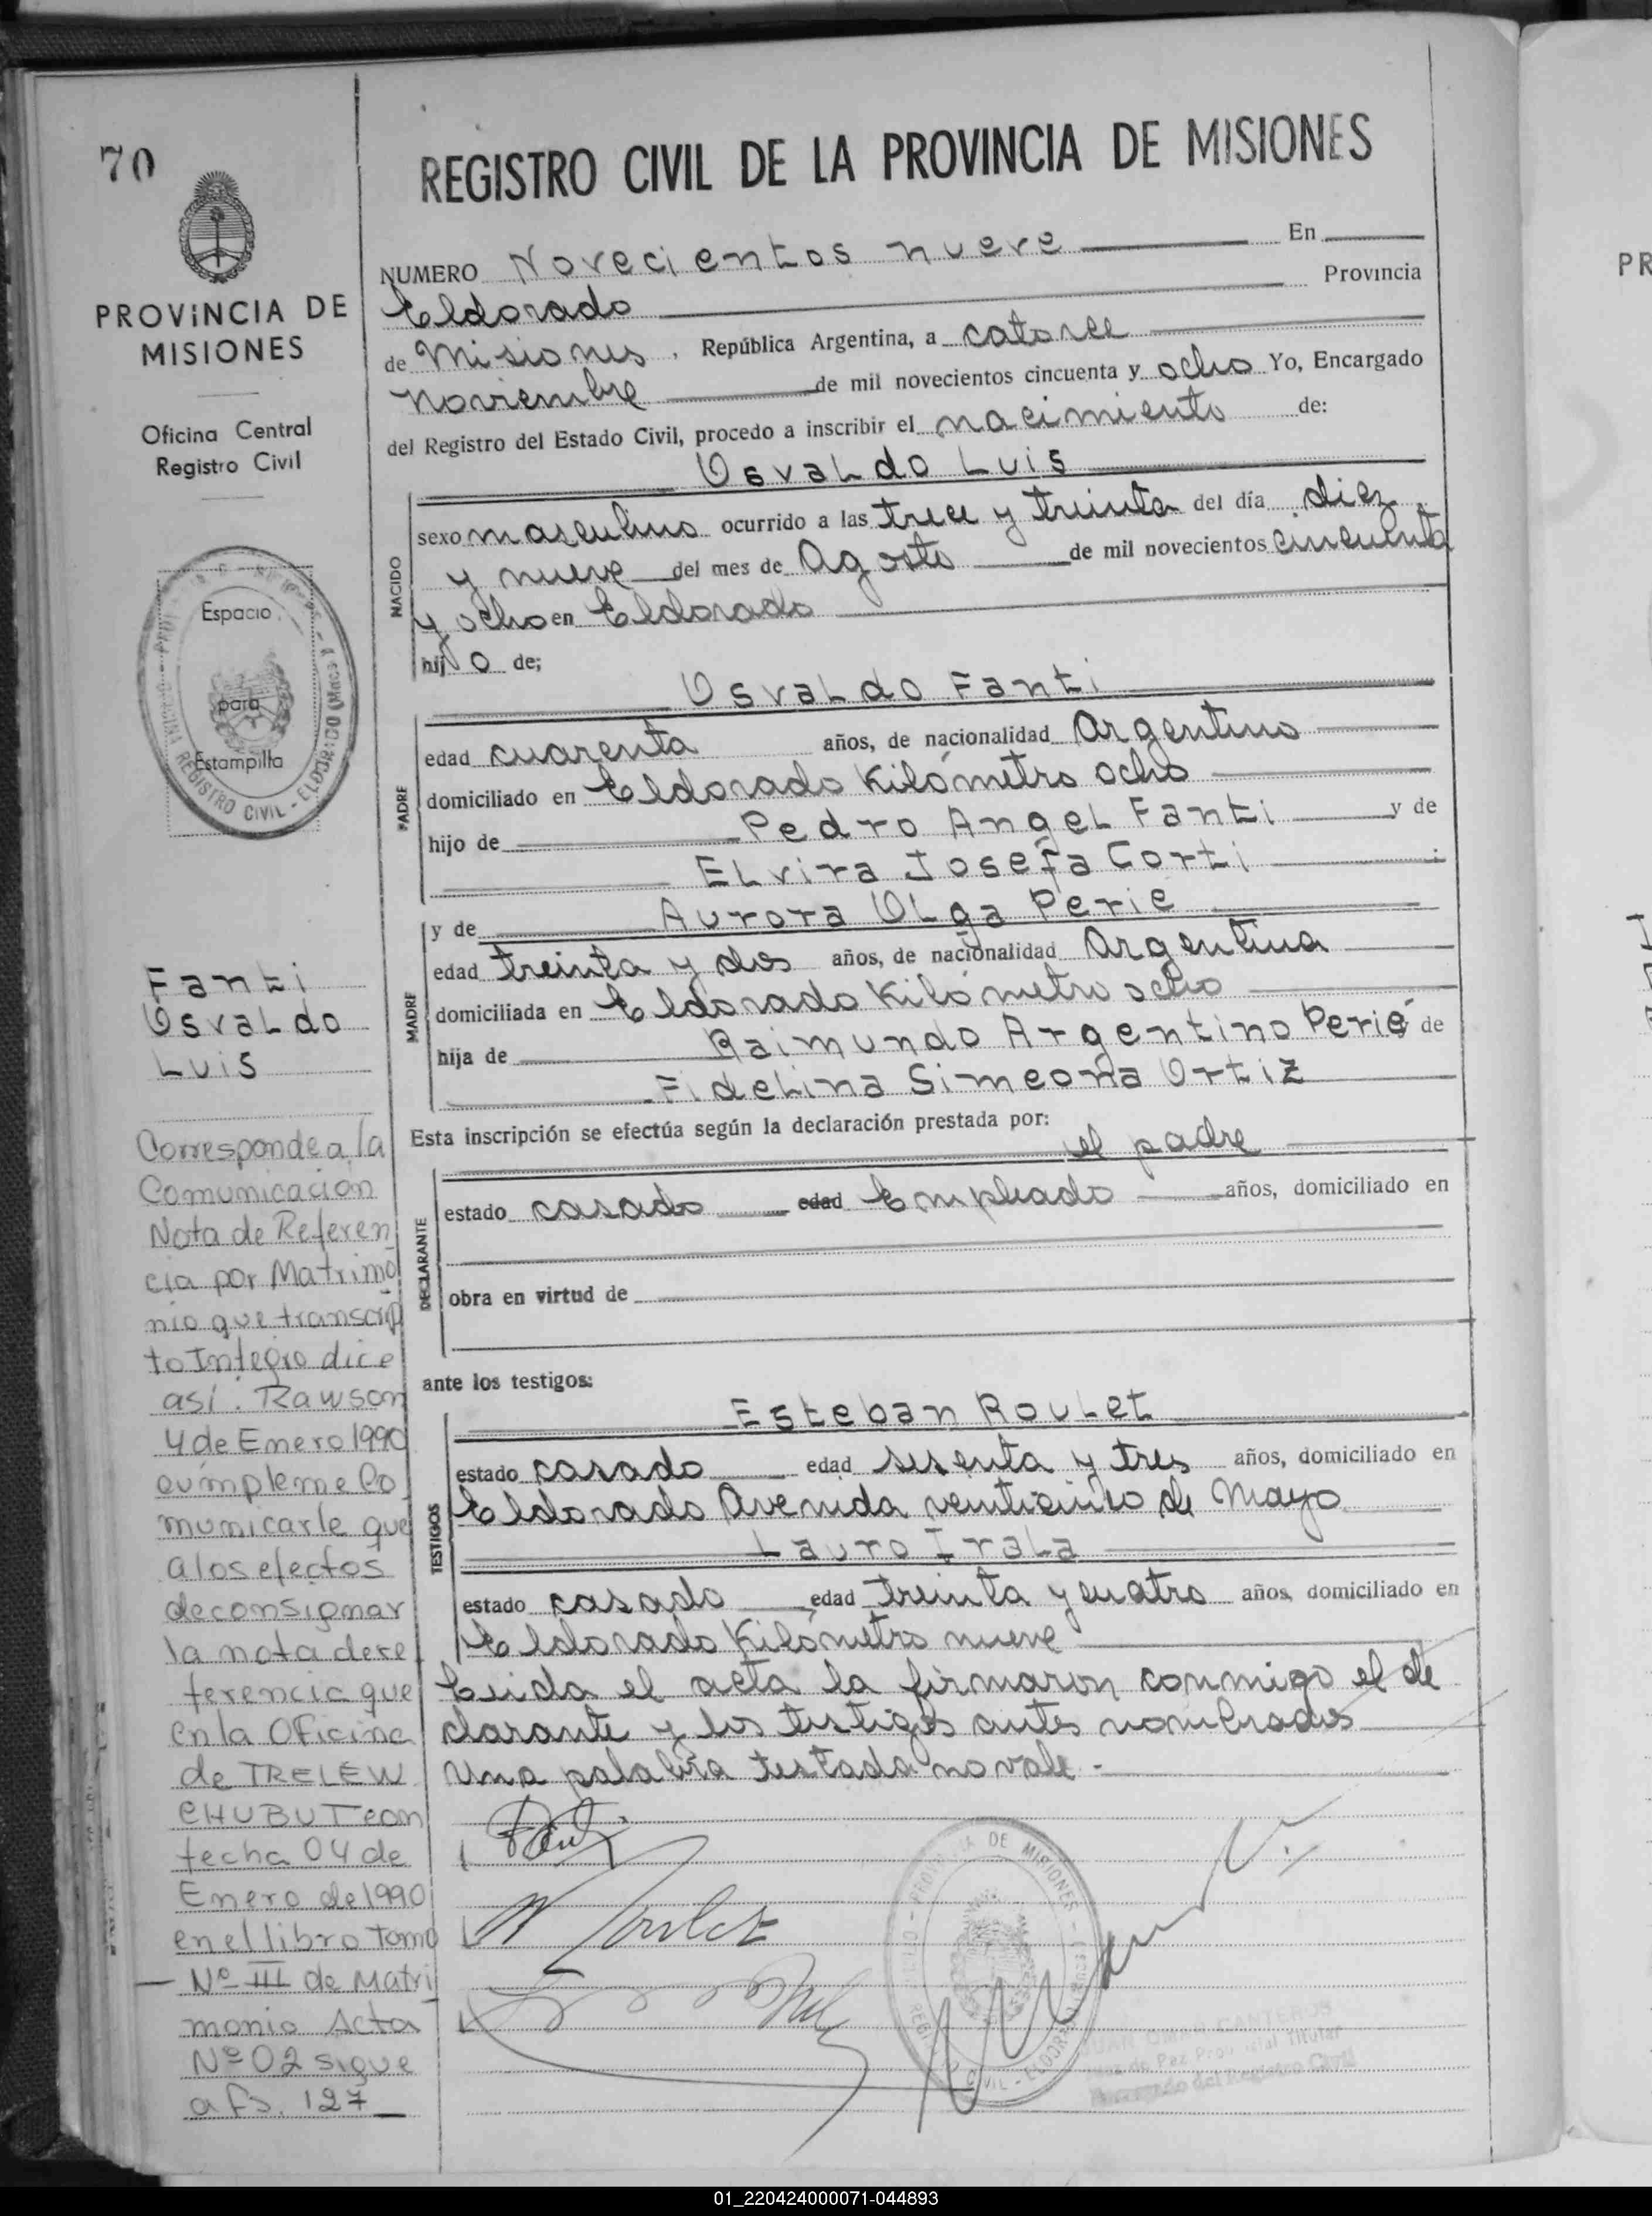 70
PROVINCIA DE
MISIONES
Oficina Central
Registro Civil
Espacio
para
Estampilla
REGISTRO CIVIL - ELDORADO
Fanti
Osvaldo
Luis
Corresponde a la
Comunicación
Nota de Referen
cia por Matrimo
nio que transcrip
to Integro dice
así. Rawson
4 de Enero 1990
cumpleme Co
municarle que
a los efectos
de consignar
la nota de re
ferencia que
en la Oficina
de TRELEW
CHUBUT con
fecha 04 de
Enero de 1990
en el libro Tomo
Nº III de Matri
monio Acta
Nº 02 sigue
a fs. 127
REGISTRO CIVIL DE LA PROVINCIA DE MISIONES
NUMERO Novecientos nueve En
Eldorado Provincia
de Misiones, República Argentina, a catorce
Noviembre de mil novecientos cincuenta y ocho Yo, Encargado
del Registro del Estado Civil, procedo a inscribir el nacimiento de:
Osvaldo Luis
NACIDO
sexo masculino ocurrido a las trece y treinta del día diez
y nueve del mes de Agosto de mil novecientos cincuenta
y ocho en Eldorado
hijo de;
Osvaldo Fanti
PADRE
edad cuarenta años, de nacionalidad Argentino
domiciliado en Eldorado Kilómetro ocho
hijo de Pedro Angel Fanti y de
Elvira Josefa Corti
y de Aurora Olga Perie
MADRE
edad treinta y dos años, de nacionalidad Argentina
domiciliada en Eldorado Kilómetro ocho
hija de Raimundo Argentino Perié de
Fidelina Simeona Ortiz
Esta inscripción se efectúa según la declaración prestada por:
el padre
DECLARANTE
estado casado edad Empleado años, domiciliado en
obra en virtud de
ante los testigos:
Esteban Roulet
TESTIGOS
estado casado edad sesenta y tres años, domiciliado en
Eldorado Avenida veinticinco de Mayo
Lauro Irala
estado casado edad treinta y cuatro años, domiciliado en
Eldorado Kilómetro nueve
Leida el acta la firmaron conmigo el de
clarante y los testigos antes nombrados
Una palabra testada no vale -
PROVINCIA DE MISIONES
CANTEROS
Juez de Paz Titular
Encargado del Registro Civil
PR
01_220424000071-044893